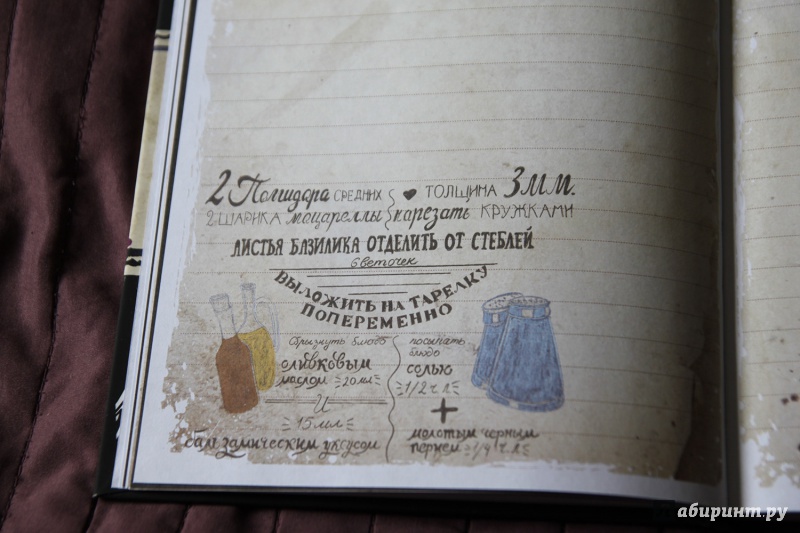 2 Помидора средних ❤ толщина 3мм.
2 шарика моцареллы нарезать кружками
ЛИСТЬЯ БАЗИЛИКА ОТДЕЛИТЬ ОТ СТЕБЛЕЙ
6 веточек
ВЫЛОЖИТЬ НА ТАРЕЛКУ
ПОПЕРЕМЕННО
сбрызнуть блюдо
сливковым
маслом =20мл=
И
=15мл=
бальзамическим уксусом
посыпать
блюдо
солью
=1/2 ч л=
+
молотым черным
перцем =1/4 ч л=
Лабиринт.ру